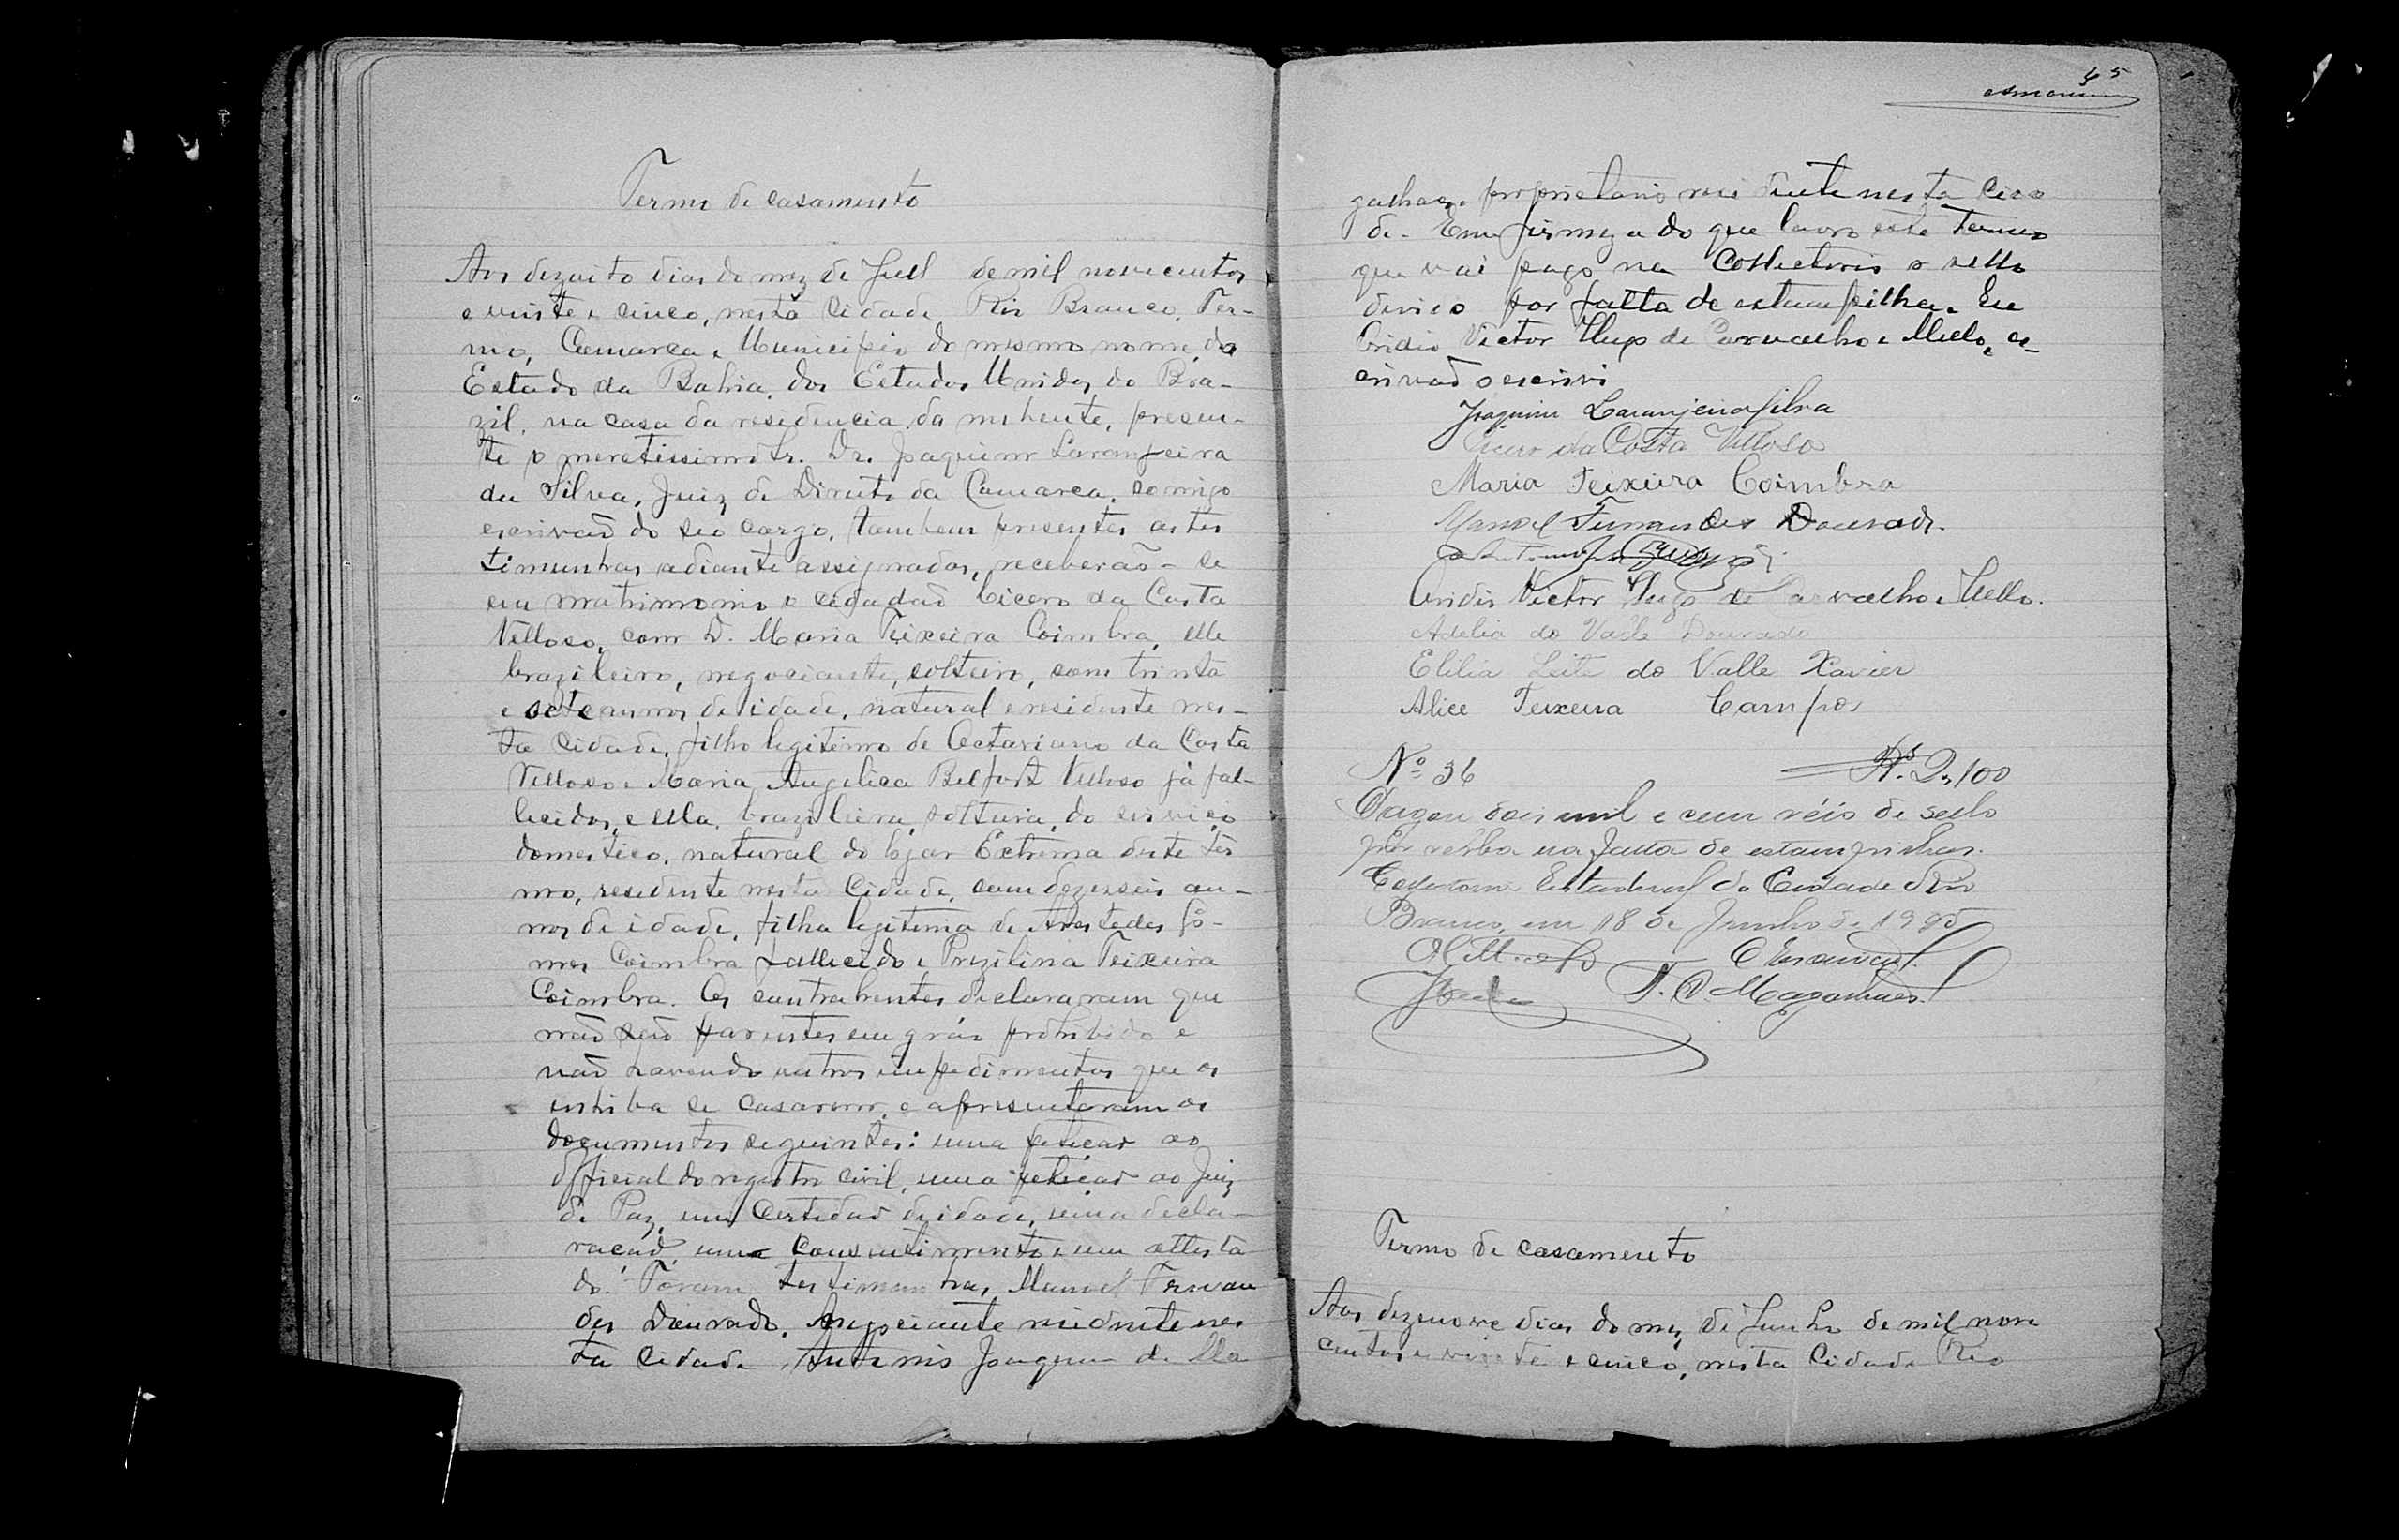 Termo de casamento
Aos dezoito dias do mez de de mil novecentos
e vinte e cinco, nesta Cidade Rio Branco, Ter-
mo, Comarca e Municipio do mesmo nome, do
Estado da Bahia, dos Estados Unidos do Bra-
zil, na casa da residencia da nubente, presen-
te o meretissimo Sr. Dr. Joaquim Laranjeira
da Silva, Juiz de Direito da Comarca, comigo
escrivaõ do seo cargo, tambem presentes as tes
timunhas adiante assignadas, receberaõ-se
em matrimonio o cidadaõ Cicero da Costa
Velloso, com D. Maria Teixeira Coimbra, elle
brazileiro, negociante, solteiro, com trinta
e sete annos de idade, natural e residente nes-
ta Cidade, filho legitimo de Octaviano da Costa
Velloso e Maria Angelica Belfort Velloso já fal-
lecidos, e ella, brazileira, solteira, do serviço
domestico, natural do logar Extrema deste ter
mo, residente nesta Cidade, com dezesseis an-
nos de idade, filha legitima de Go-
mes Coimbra fallecido e Prezilina Teixeira
Coimbra. Os contrahentes declararam que
naõ saõ parentes em gráo prohibido e
naõ havendo outros impedimentos que os
inhiba se casarem, e apresentaram os
documentos seguintes: uma petiçaõ ao
Official do registro civil, uma petiçaõ ao Juiz
de Paz, uma Certidaõ de idade, uma decla-
raçaõ, um Consentimento e um attesta
do. Foram testimunhas, Manoel Fernan
des Dourado, negociante residente nes
ta Cidade e Antonio Joaquim de Ma
45
galhaes, proprietario residente nesta Cida
de. Em firmeza do que lavro este termo
que vai pago na Collectoria o sello
devido por falta de estampilha. Eu
Ovidio Victor Hugo de Carvalho e Mello, es-
crivaõ o escrivi
Joaquim Laranjeira Silva
Cicero da Costa Velloso
Maria Teixeira Coimbra
Manoel Fernandes Dourado.
Ovidio Victor Hugo de Carvalho e Mello.
Adelia do Valle Dourado
Elilia Leite do Valle Xavier
Alice Teixeira Campos
Nº 36 Rs. 2,100
Pagou dois mil e cem réis de sello
por verba na falta de estampilhas.
Collectoria Estadual da Cidade Rio
Branco, em 18 de Junho de 1925
O Escrivaõ.
Magalhaes.
Termo de casamento
Aos dezenove dias do mez de Junho de mil nove
centos e vinte e cinco, nesta Cidade Rio